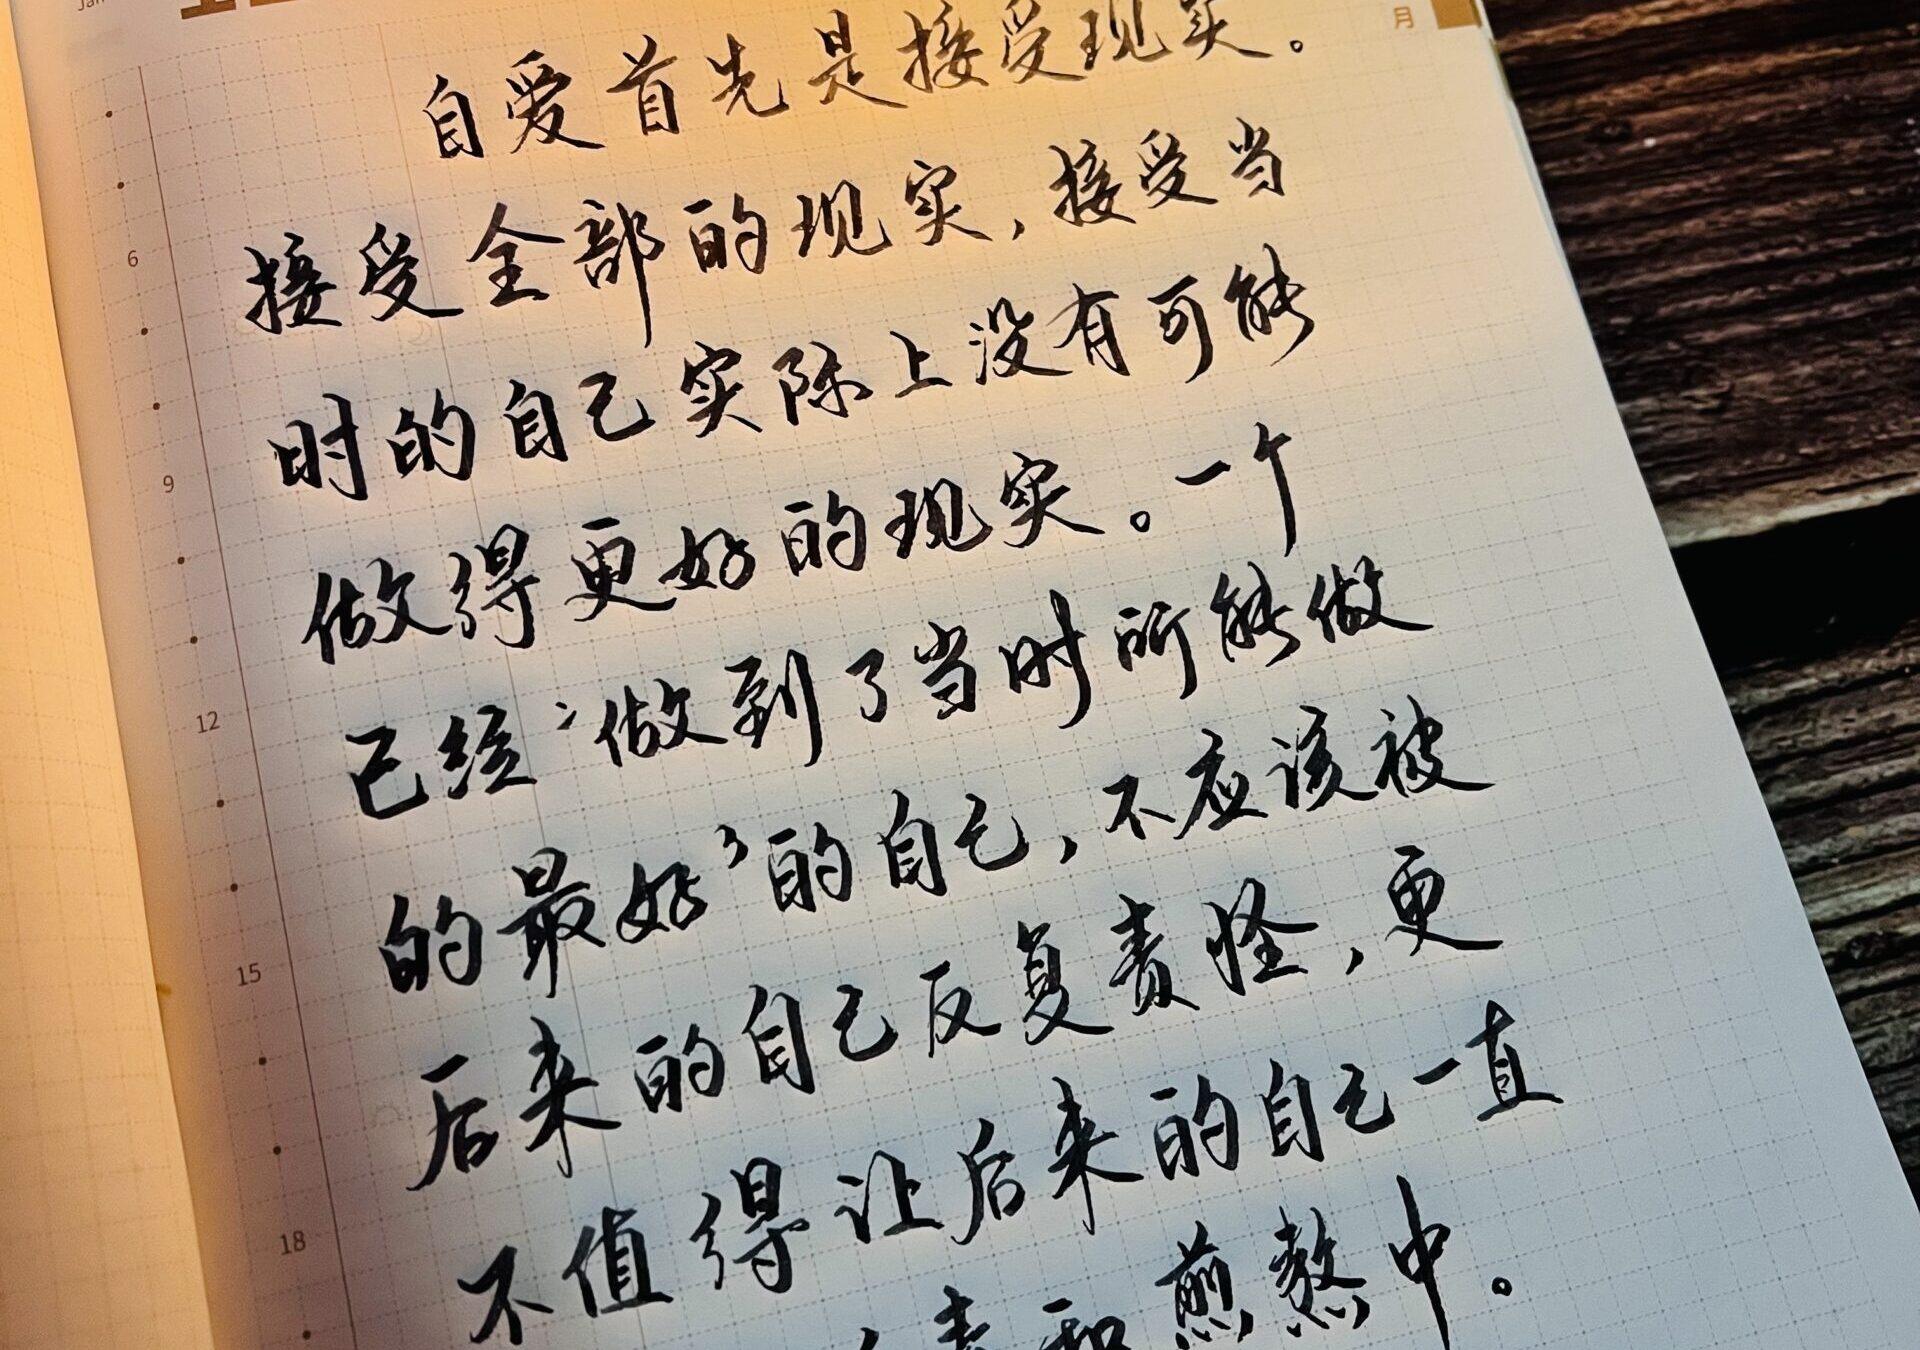 Jan
月
自爱首先是接受现实。
接受全部的现实，接受当
时的自己实际上没有可能
做得更好的现实。一个
已经“做到了当时所能做
的最好”的自己，不应该被
后来的自己反复责怪，更
不值得让后来的自己一直
和煎熬中。
6
9
12
15
18